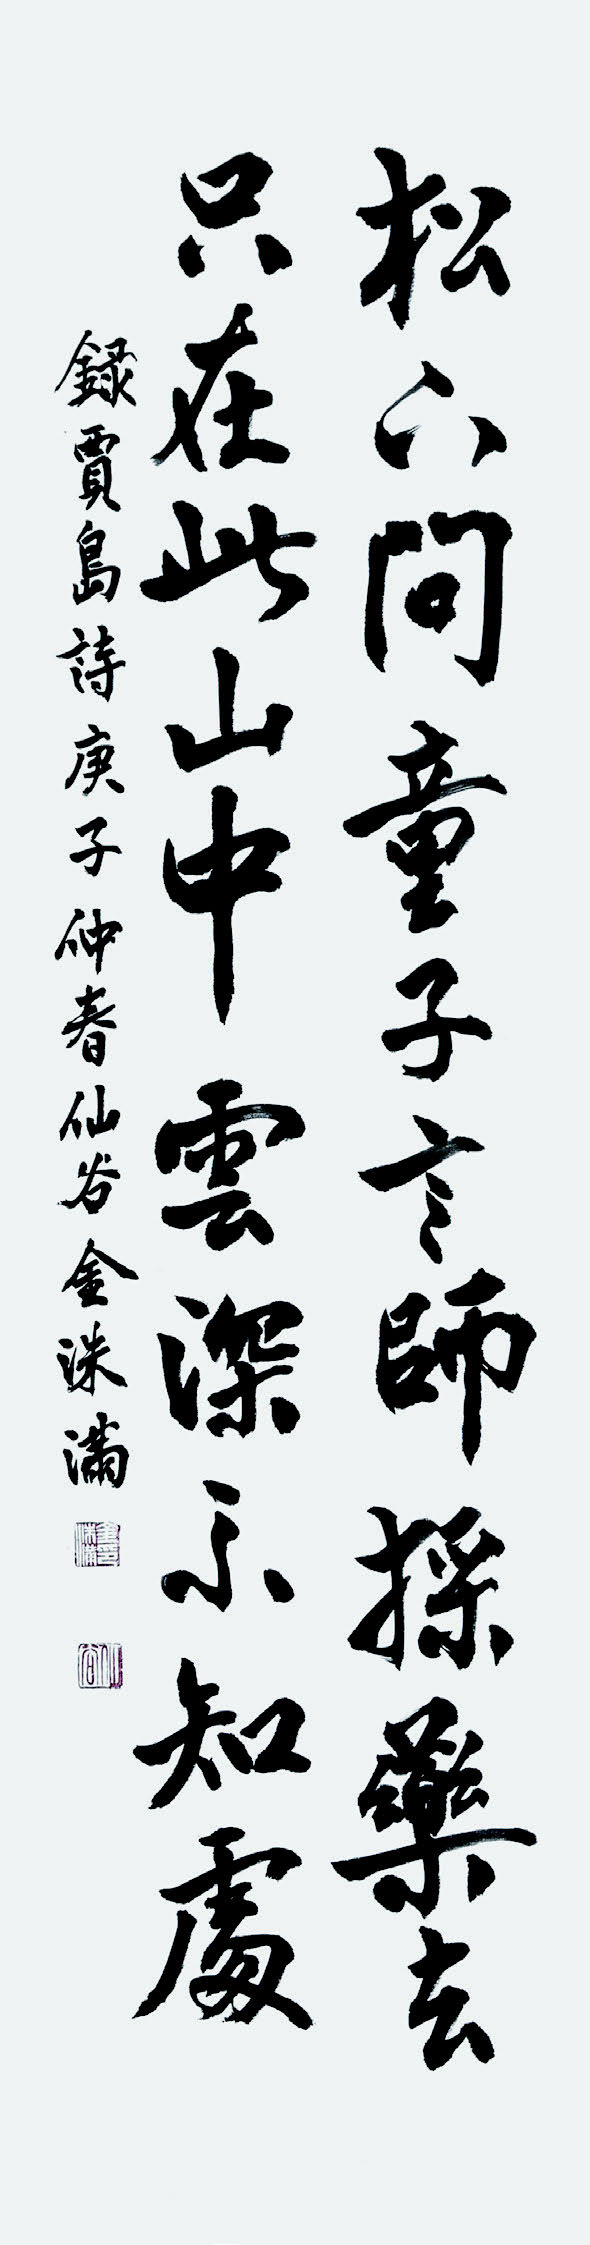 松下問童子言師採藥去
只在此山中雲深不知處
錄賈島詩庚子仲春仙谷金洙滿